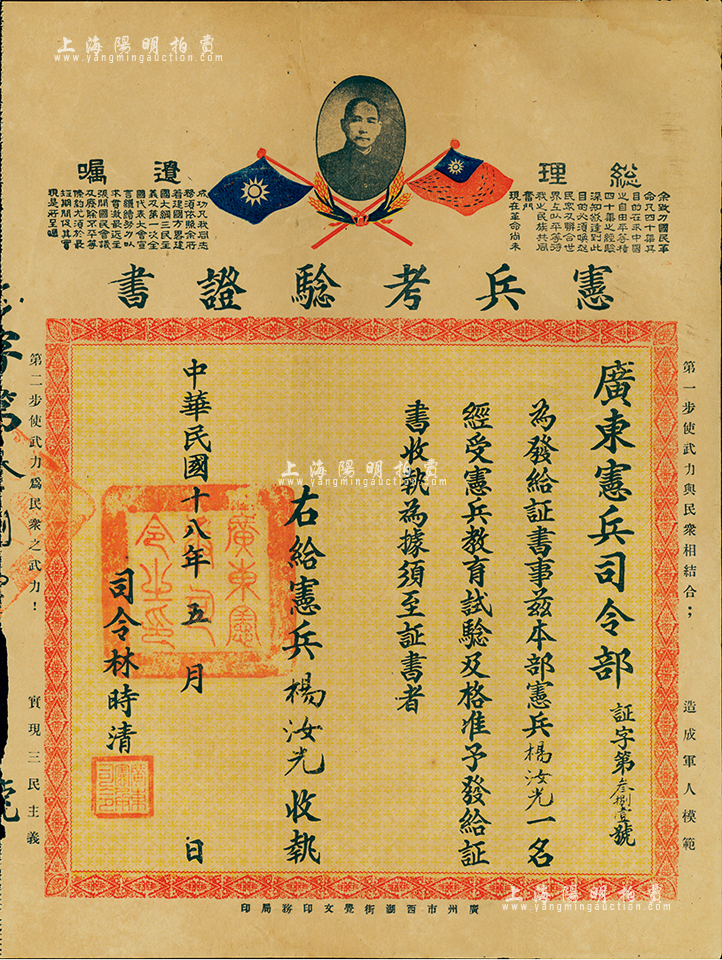 上海陽明拍賣
www.yangmingauction.com
總理
遺囑
余致力國民革
命凡四十年其
目的在求中國
之自由平等積
四十年之經驗
深知欲達到此
目的必須喚起
民眾及聯合世
界上以平等待
我之民族共同
奮鬥
現在革命尚未
成功凡我同志
務須依照余所
著建國方畧建
國大綱三民主
義及第一次全
國代表大會宣
言繼續努力以
求貫澈最近主
張開國民會議
及廢除不平等
條約尤須於最
短期間促其實
現是所至囑
憲兵考驗證書
第一步使武力與民衆相結合；
造成軍人模範
廣東憲兵司令部
証字第叁捌壹號
為發給証書事茲本部憲兵楊汝光一名
經受憲兵教育試驗及格准予發給証
書收執為據須至証書者
右給憲兵楊汝光收執
中華民國十八年五月 日
司令林時清
廣東憲兵司令之印
第二步使武力爲民衆之武力！
實現三民主義
字第
號
上海陽明拍賣
www.yangmingauction.com
廣州市西湖街覺文印務局印
上海陽明拍賣
www.yangmingauction.com